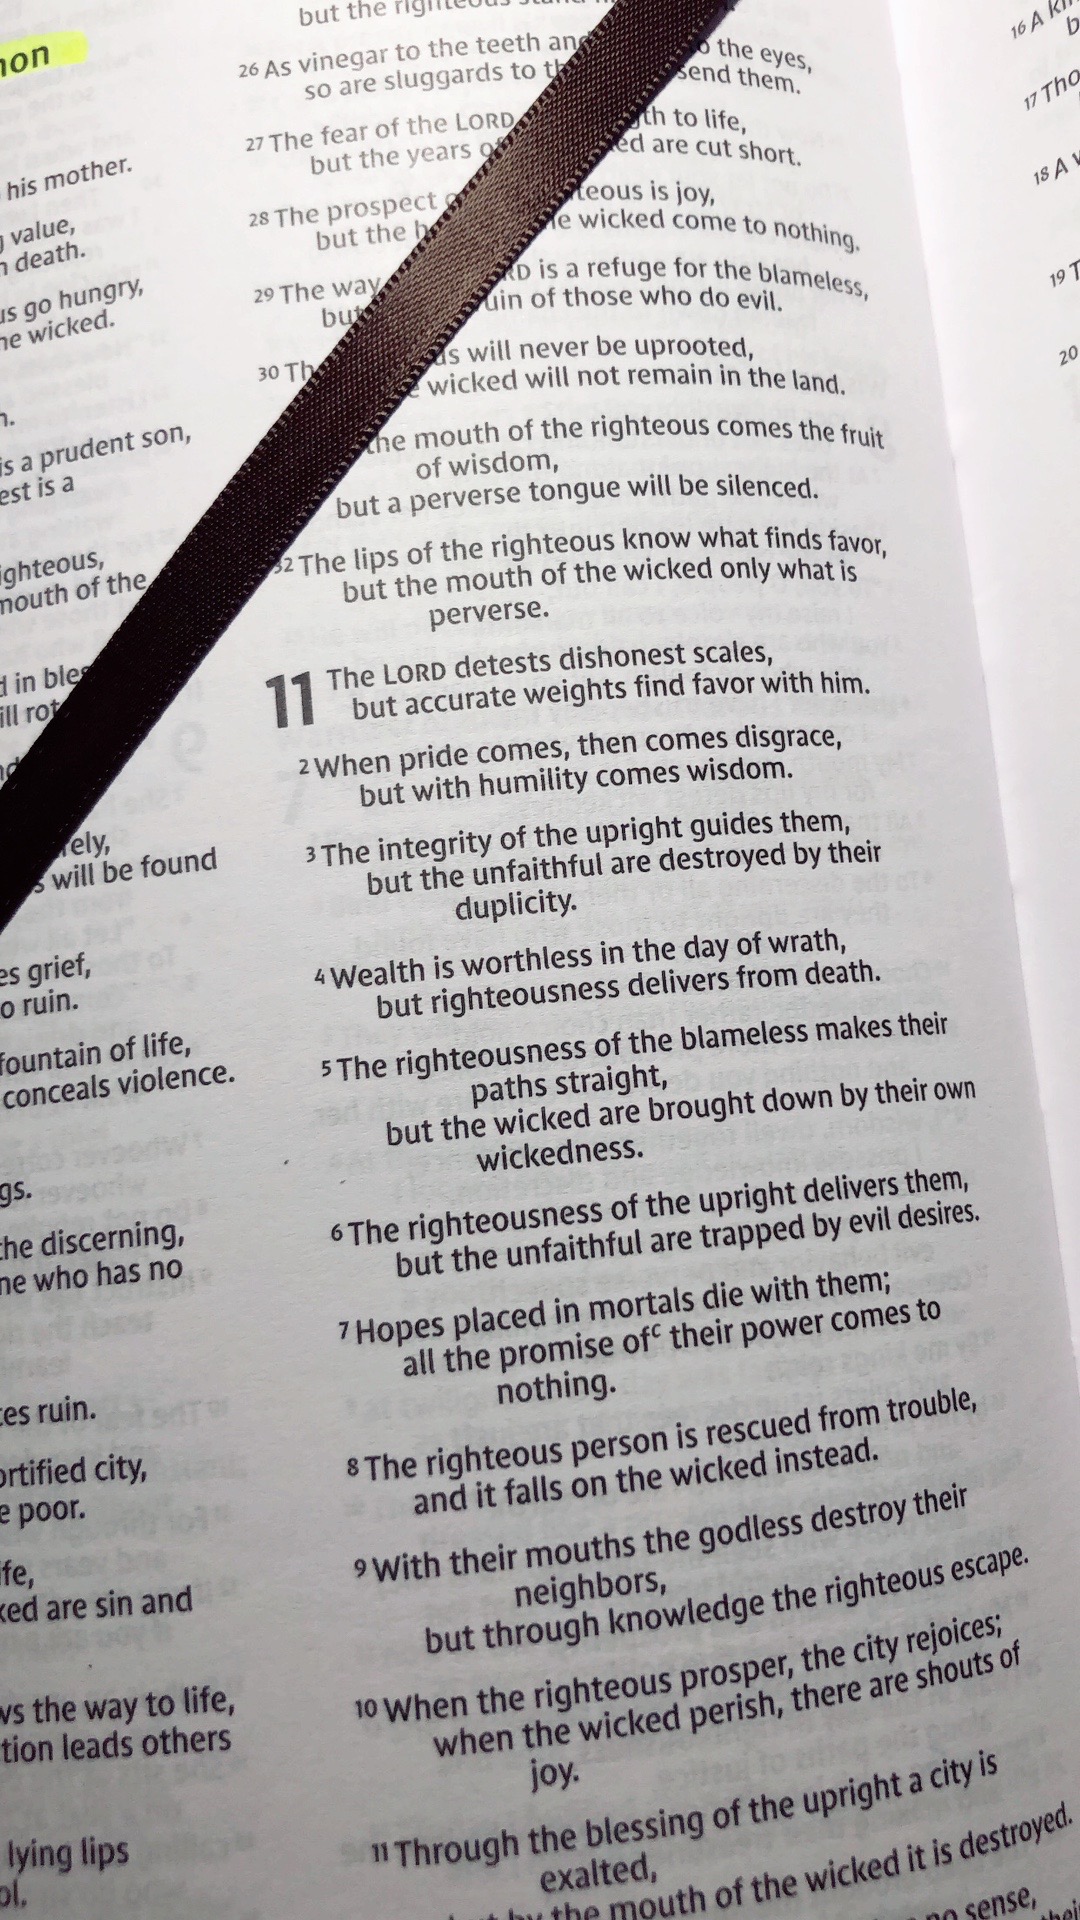 non
his mother.
value,
death.
us go hungry,
he wicked.
is a prudent son,
est is a
ighteous,
mouth of the
d in bles
ill rot
rely,
s will be found
es grief,
o ruin.
fountain of life,
conceals violence.
gs.
the discerning,
ne who has no
ces ruin.
ortified city,
e poor.
ife,
ked are sin and
ws the way to life,
tion leads others
lying lips
ol.
but the righteous stand
26 As vinegar to the teeth and to the eyes,
so are sluggards to th send them.
27 The fear of the LORD th to life,
but the years of ed are cut short.
28 The prospect teous is joy,
but the h e wicked come to nothing.
29 The way RD is a refuge for the blameless,
but uin of those who do evil.
30 Th us will never be uprooted,
wicked will not remain in the land.
the mouth of the righteous comes the fruit
of wisdom,
but a perverse tongue will be silenced.
32 The lips of the righteous know what finds favor,
but the mouth of the wicked only what is
perverse.
11 The LORD detests dishonest scales,
but accurate weights find favor with him.
2 When pride comes, then comes disgrace,
but with humility comes wisdom.
3 The integrity of the upright guides them,
but the unfaithful are destroyed by their
duplicity.
4 Wealth is worthless in the day of wrath,
but righteousness delivers from death.
5 The righteousness of the blameless makes their
paths straight,
but the wicked are brought down by their own
wickedness.
6 The righteousness of the upright delivers them,
but the unfaithful are trapped by evil desires.
7 Hopes placed in mortals die with them;
all the promise of c their power comes to
nothing.
8 The righteous person is rescued from trouble,
and it falls on the wicked instead.
9 With their mouths the godless destroy their
neighbors,
but through knowledge the righteous escape.
10 When the righteous prosper, the city rejoices;
when the wicked perish, there are shouts of
joy.
11 Through the blessing of the upright a city is
exalted,
but by the mouth of the wicked it is destroyed.
no sense,
16 A
17 Tho
18 A
19 T
20